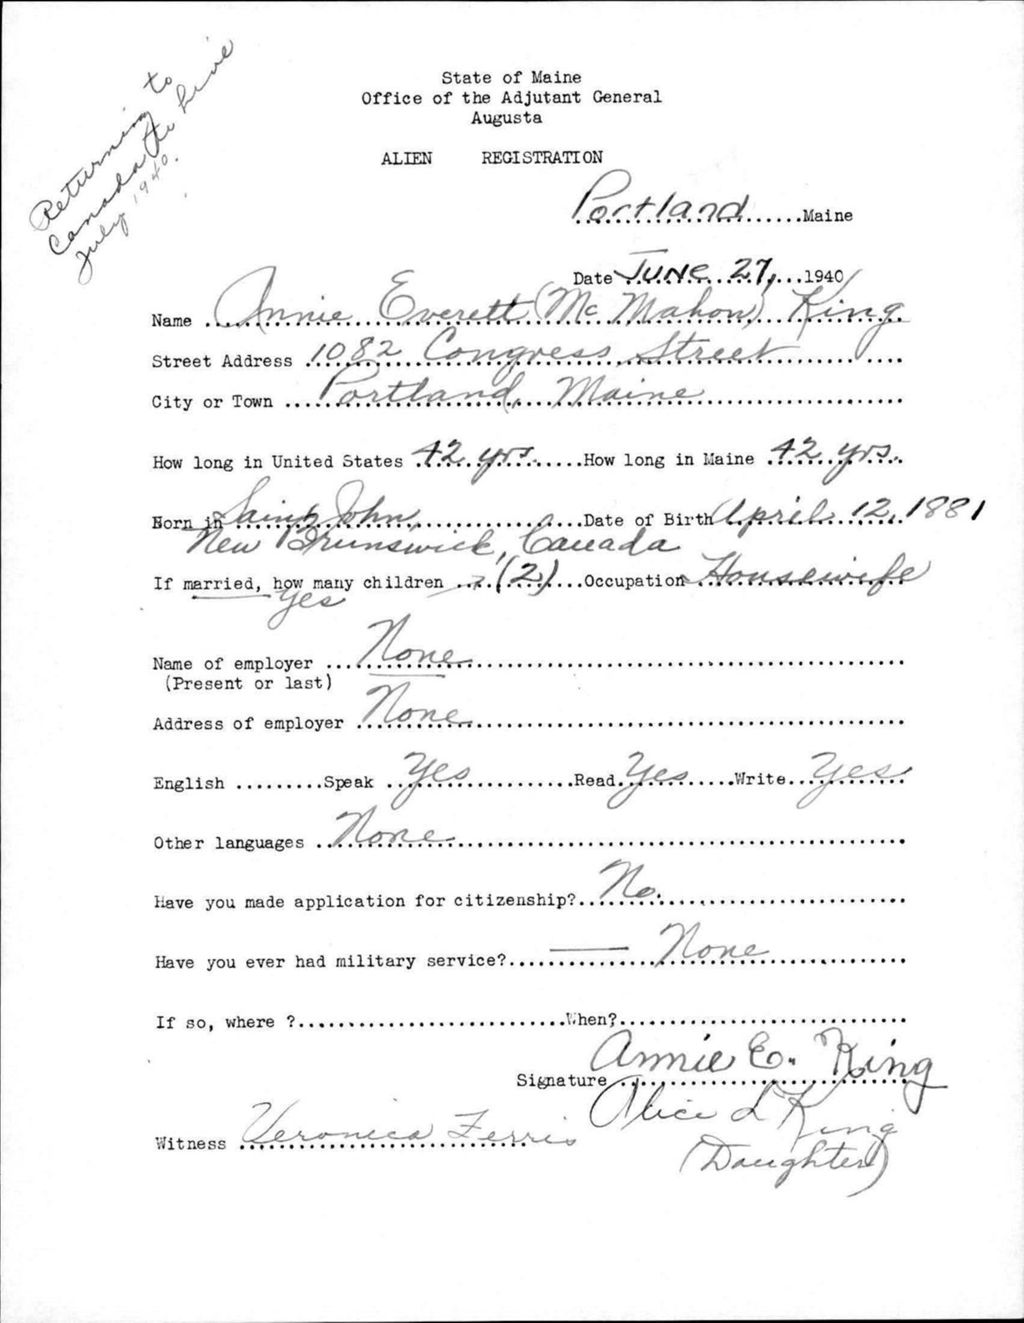 Returning to
Canada to live
July 1940.
State of Maine
Office of the Adjutant General
Augusta
ALIEN REGISTRATION
Portland.......Maine
Date June 27, ...1940
Name ..Annie Everett (McMahon) King
Street Address .1082 Congress Street
City or Town ...Portland, Maine
How long in United States .42 yrs......How long in Maine .42 yrs.
Born in Saint John, ...Date of Birth April 12, 1881
New Brunswick, Canada
If married, how many children ...(2)...Occupation Housewife
Yes
Name of employer ...None
(Present or last)
Address of employer None
English .........Speak ..Yes...........Read Yes......Write...Yes
Other languages ..None
Have you made application for citizenship?...No.
Have you ever had military service?...— None
If so, where ?...........................When?.............................
Signature Annie E. King
Alice L King
Witness Veronica Ferris
(Daughter)